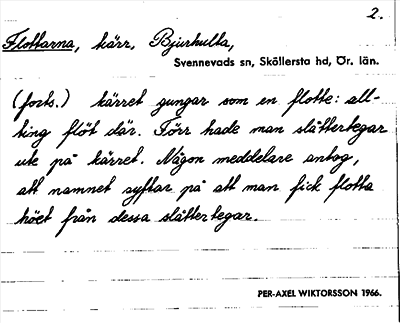 2.
Flottarna, kärr, Bjurhulta,
Svennevads sn, Sköllersta hd, Ör. län.
(forts.) kärret gungar som en flotte: all-
ting flöt där. Förr hade man slåttertegar
ute på kärret. Någon meddelare antog,
att namnet syftar på att man fick flotta
höet från dessa slåttertegar.
PER-AXEL WIKTORSSON 1966.